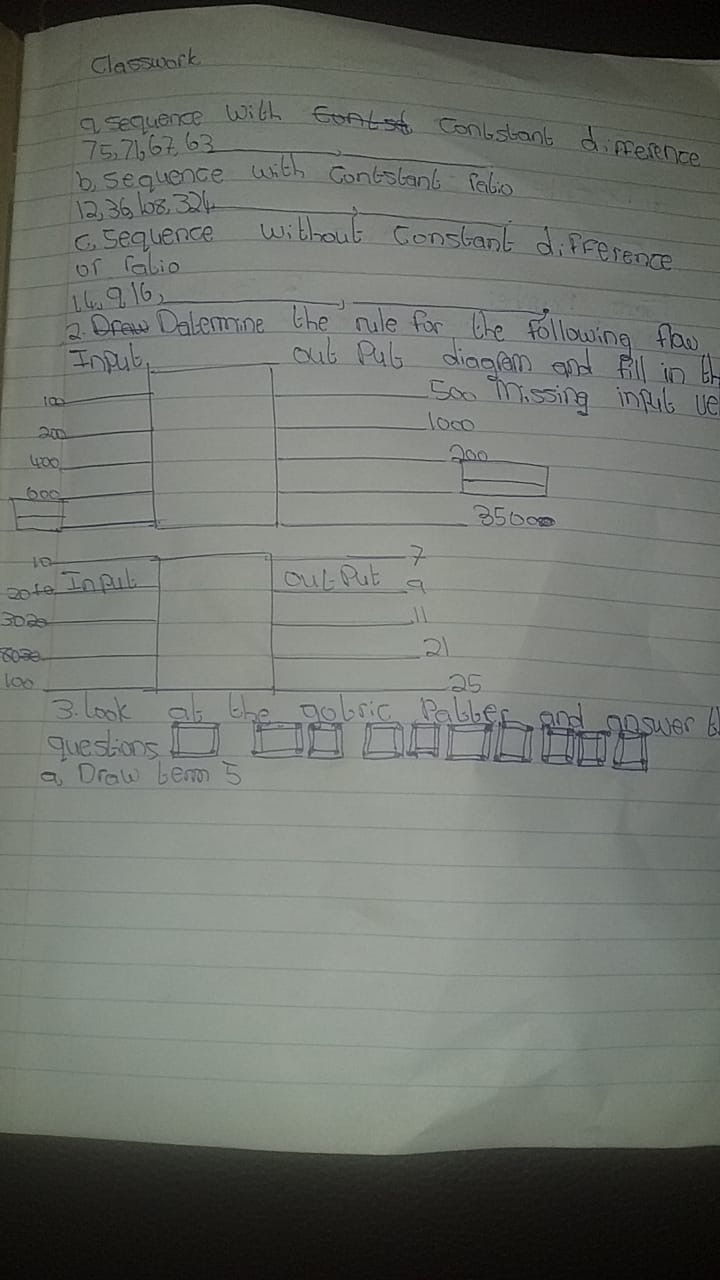 Classwork
a, Sequence with Contst Contstant difference
75, 71, 67, 63 ____, ____
b, Sequence with Contstant ratio
12, 36, 108, 324 ____, ____
c, Sequence without Constant difference
or ratio
1, 4, 9, 16, ____, ____
2. Draw Datermine the rule for the following flow
Input out Put diagram and fill in th
100 500 missing input ve
200 1000
400 200
600
35000
10 7
20 Input OutPut 9
30 11
80 21
100 25
3. Look at the Patter and answer th
questions
a, Draw term 5